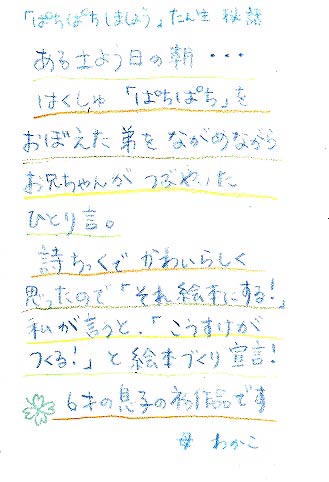 「ぱちぱちしましょう」たん生 秘話
ある土よう日の朝・・・
はくしゅ「ぱちぱち」を
おぼえた弟をながめながら
お兄ちゃんがつぶやいた
ひとり言。
詩ちっくでかわいらしく
思ったので「それ絵本にする!」
私が言うと、「こうすけが
つくる!」と絵本づくり宣言!
6才の息子の初作品です
母 わかこ